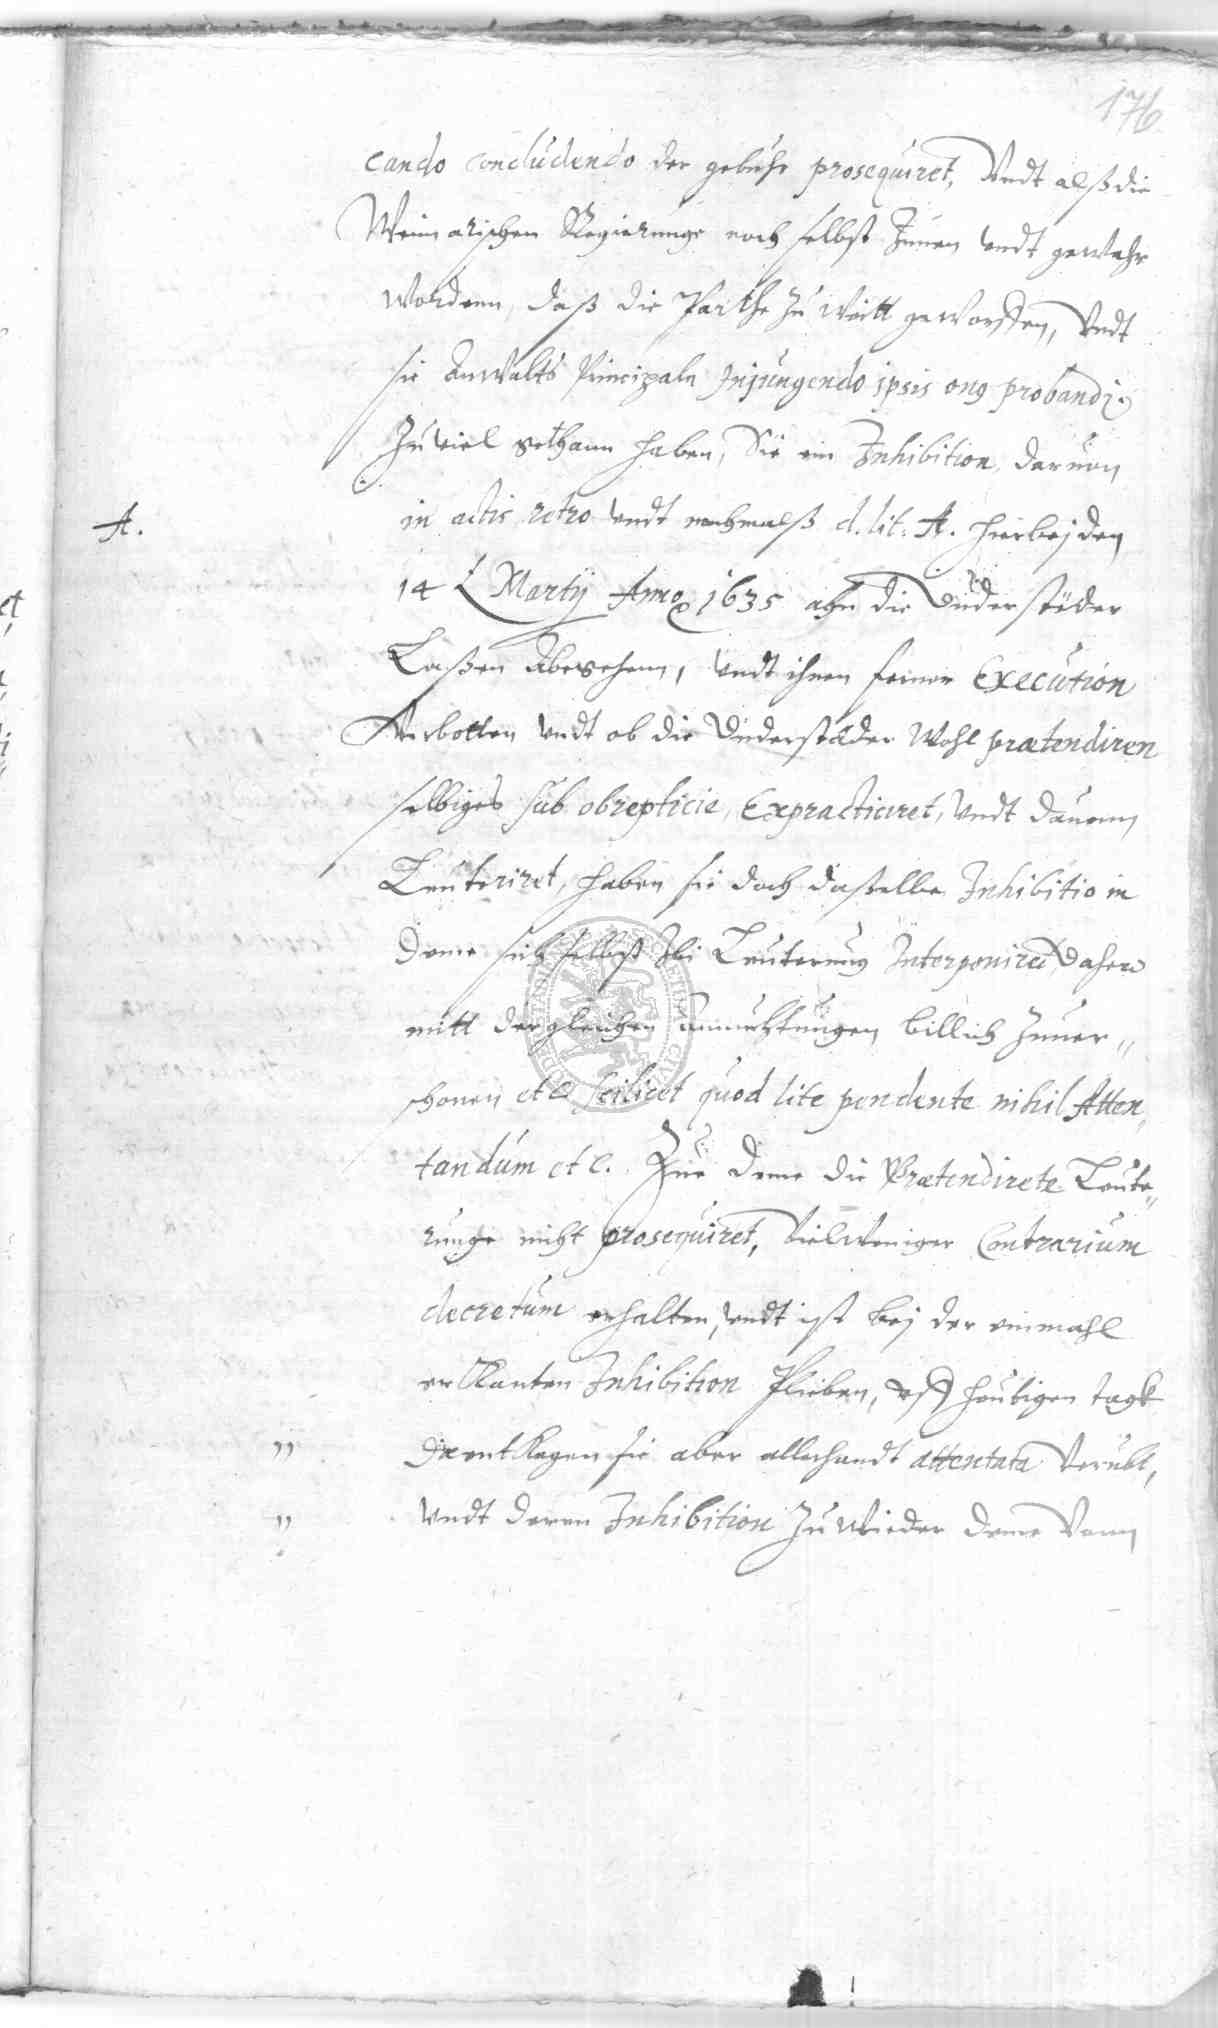 176
cando concludendo der gebühr prosequiret, Undt alß die
Weimarischen Regierunge noch selbst Innen undt gewahr
worden, daß die Parthe zu weitt geworffen, Undt
sie Anwalts Principaln Injungendo ipsis on9 probandi
zuviel gethann haben, Sie ein Inhibition, daruon
A.
in actis retro undt nachmalß d. lit. A. hierbej den
14 Martij Anno 1635 ahn die Duderstäder
Laßen Abegehenn, undt ihnen ferner Execution
Verbotten undt ob die Duderstäder Wohl prætendiren
selbiges sub obrepticie, Expracticiret, undt dauonn
Leuteriret, haben sie doch daßelbe Inhibitio in
deme sich selbst Leuterung Interponiret, dahero
mitt dergleichen billich Zuuer„
schonen etc scilicet quod lite pendente nihil Atten„
tandum etc. Zue deme die Prætendirete Leute„
runge nicht prosequiret, Vielweniger Contrarium
decretum erhalten, undt ist bej der einmahl
erkanten Inhibition plieben, uff heutigen tagk
„ Dxentkegen sie aber allerhandt attentata Verübt,
„ Undt deren Inhibition Zu wieder deme Vonn